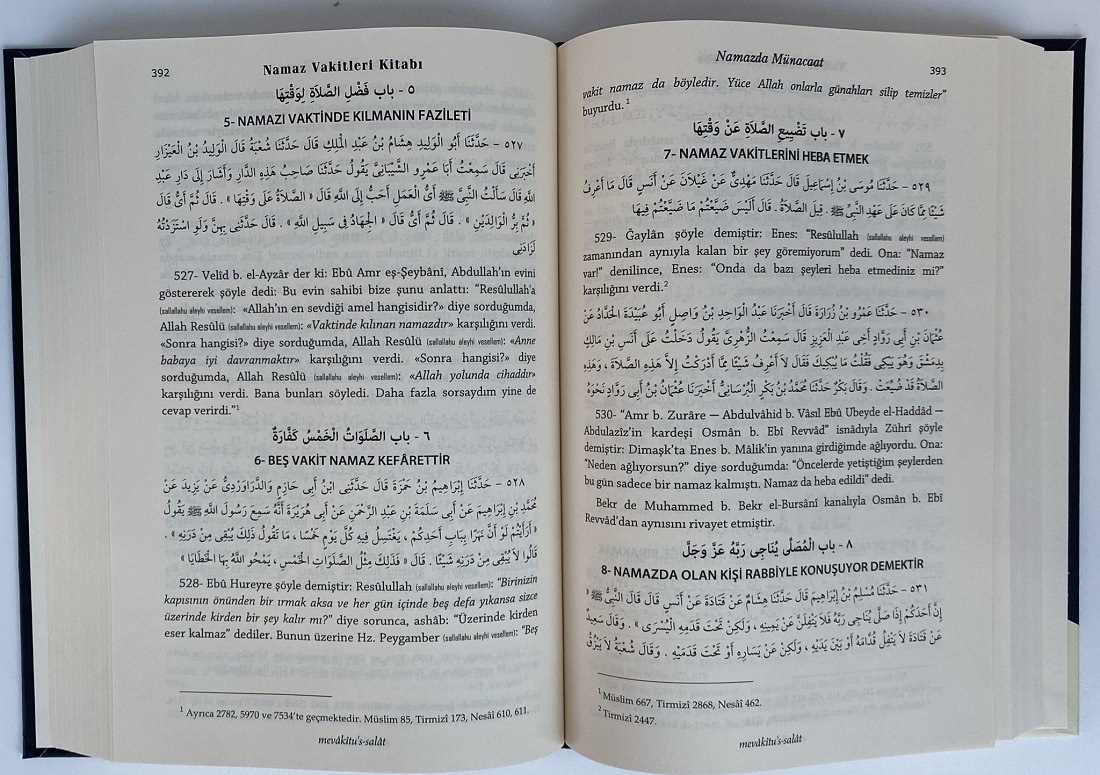 392
Namaz Vakitleri Kitabı
٥ - باب فَضْلِ الصَّلاَةِ لِوَقْتِهَا
5- NAMAZI VAKTİNDE KILMANIN FAZİLETİ
٥٢٧ - حَدَّثَنَا أَبُو الْوَلِيدِ هِشَامُ بْنُ عَبْدِ الْمَلِكِ قَالَ حَدَّثَنَا شُعْبَةُ قَالَ الْوَلِيدُ بْنُ الْعَيْزَارِ
أَخْبَرَنِى قَالَ سَمِعْتُ أَبَا عَمْرٍو الشَّيْبَانِىَّ يَقُولُ حَدَّثَنَا صَاحِبُ هَذِهِ الدَّارِ وَأَشَارَ إِلَى دَارِ عَبْدِ
اللَّهِ قَالَ سَأَلْتُ النَّبِىَّ ﷺ أَىُّ الْعَمَلِ أَحَبُّ إِلَى اللَّهِ قَالَ « الصَّلاَةُ عَلَى وَقْتِهَا » . قَالَ ثُمَّ أَىُّ قَالَ
« ثُمَّ بِرُّ الْوَالِدَيْنِ » . قَالَ ثُمَّ أَىُّ قَالَ « الْجِهَادُ فِى سَبِيلِ اللَّهِ » . قَالَ حَدَّثَنِى بِهِنَّ وَلَوِ اسْتَزَدْتُهُ
لَزَادَنِى
527- Velîd b. el-Ayzâr der ki: Ebû Amr eş-Şeybânî, Abdullah'ın evini
göstererek şöyle dedi: Bu evin sahibi bize şunu anlattı: "Resûlullah'a
(sallallahu aleyhi vesellem): «Allah'ın en sevdiği amel hangisidir?» diye sorduğumda,
Allah Resûlü (sallallahu aleyhi vesellem): «Vaktinde kılınan namazdır» karşılığını verdi.
«Sonra hangisi?» diye sorduğumda, Allah Resûlü (sallallahu aleyhi vesellem): «Anne
babaya iyi davranmaktır» karşılığını verdi. «Sonra hangisi?» diye
sorduğumda, Allah Resûlü (sallallahu aleyhi vesellem): «Allah yolunda cihaddır»
karşılığını verdi. Bana bunları söyledi. Daha fazla sorsaydım yine de
cevap verirdi."1
٦ - باب الصَّلَوَاتُ الْخَمْسُ كَفَّارَةٌ
6- BEŞ VAKİT NAMAZ KEFÂRETTİR
٥٢٨ - حَدَّثَنَا إِبْرَاهِيمُ بْنُ حَمْزَةَ قَالَ حَدَّثَنِى ابْنُ أَبِى حَازِمٍ وَالدَّرَاوَرْدِىُّ عَنْ يَزِيدَ عَنْ
مُحَمَّدِ بْنِ إِبْرَاهِيمَ عَنْ أَبِى سَلَمَةَ بْنِ عَبْدِ الرَّحْمَنِ عَنْ أَبِى هُرَيْرَةَ أَنَّهُ سَمِعَ رَسُولَ اللَّهِ ﷺ يَقُولُ
« أَرَأَيْتُمْ لَوْ أَنَّ نَهَرًا بِبَابِ أَحَدِكُمْ ، يَغْتَسِلُ فِيهِ كُلَّ يَوْمٍ خَمْسًا ، مَا تَقُولُ ذَلِكَ يُبْقِى مِنْ دَرَنِهِ » .
قَالُوا لاَ يُبْقِى مِنْ دَرَنِهِ شَيْئًا . قَالَ « فَذَلِكَ مِثْلُ الصَّلَوَاتِ الْخَمْسِ ، يَمْحُو اللَّهُ بِهَا الْخَطَايَا » .
528- Ebû Hureyre şöyle demiştir: Resûlullah (sallallahu aleyhi vesellem): "Birinizin
kapısının önünden bir ırmak aksa ve her gün içinde beş defa yıkansa sizce
üzerinde kirden bir şey kalır mı?" diye sorunca, ashâb: "Üzerinde kirden
eser kalmaz" dediler. Bunun üzerine Hz. Peygamber (sallallahu aleyhi vesellem): "Beş
1 Ayrıca 2782, 5970 ve 7534'te geçmektedir. Müslim 85, Tirmizî 173, Nesâî 610, 611.
mevâkîtu's-salât
Namazda Münacaat
393
vakit namaz da böyledir. Yüce Allah onlarla günahları silip temizler"
buyurdu. 1
٧ - باب تَضْيِيعِ الصَّلاَةِ عَنْ وَقْتِهَا
7- NAMAZ VAKİTLERİNİ HEBA ETMEK
٥٢٩ - حَدَّثَنَا مُوسَى بْنُ إِسْمَاعِيلَ قَالَ حَدَّثَنَا مَهْدِىٌّ عَنْ غَيْلاَنَ عَنْ أَنَسٍ قَالَ مَا أَعْرِفُ
شَيْئًا مِمَّا كَانَ عَلَى عَهْدِ النَّبِىِّ ﷺ . قِيلَ الصَّلاَةُ . قَالَ أَلَيْسَ ضَيَّعْتُمْ مَا ضَيَّعْتُمْ فِيهَا
529- Ğaylân şöyle demiştir: Enes: "Resûlullah (sallallahu aleyhi vesellem)
zamanından aynıyla kalan bir şey göremiyorum" dedi. Ona: "Namaz
var!" denilince, Enes: "Onda da bazı şeyleri heba etmediniz mi?"
karşılığını verdi.2
٥٣٠ - حَدَّثَنَا عَمْرُو بْنُ زُرَارَةَ قَالَ أَخْبَرَنَا عَبْدُ الْوَاحِدِ بْنُ وَاصِلٍ أَبُو عُبَيْدَةَ الْحَدَّادُ عَنْ
عُثْمَانَ بْنِ أَبِى رَوَّادٍ أَخِى عَبْدِ الْعَزِيزِ قَالَ سَمِعْتُ الزُّهْرِىَّ يَقُولُ دَخَلْتُ عَلَى أَنَسِ بْنِ مَالِكٍ
بِدِمَشْقَ وَهُوَ يَبْكِى فَقُلْتُ مَا يُبْكِيكَ فَقَالَ لاَ أَعْرِفُ شَيْئًا مِمَّا أَدْرَكْتُ إِلاَّ هَذِهِ الصَّلاَةَ ، وَهَذِهِ
الصَّلاَةُ قَدْ ضُيِّعَتْ . وَقَالَ بَكْرٌ حَدَّثَنَا مُحَمَّدُ بْنُ بَكْرٍ الْبُرْسَانِىُّ أَخْبَرَنَا عُثْمَانُ بْنُ أَبِى رَوَّادٍ نَحْوَهُ
530- "Amr b. Zurâre – Abdulvâhid b. Vâsıl Ebû Ubeyde el-Haddâd –
Abdulazîz'in kardeşi Osmân b. Ebî Revvâd" isnâdıyla Zührî şöyle
demiştir: Dimaşk'ta Enes b. Mâlik'in yanına girdiğimde ağlıyordu. Ona:
"Neden ağlıyorsun?" diye sorduğumda: "Öncelerde yetiştiğim şeylerden
bu gün sadece bir namaz kalmıştı. Namaz da heba edildi" dedi.
Bekr de Muhammed b. Bekr el-Bursânî kanalıyla Osmân b. Ebî
Revvâd'dan aynısını rivayet etmiştir.
٨ - باب الْمُصَلِّى يُنَاجِى رَبَّهُ عَزَّ وَجَلَّ
8- NAMAZDA OLAN KİŞİ RABBİYLE KONUŞUYOR DEMEKTİR
٥٣١ - حَدَّثَنَا مُسْلِمُ بْنُ إِبْرَاهِيمَ قَالَ حَدَّثَنَا هِشَامٌ عَنْ قَتَادَةَ عَنْ أَنَسٍ قَالَ قَالَ النَّبِىُّ ﷺ «
إِنَّ أَحَدَكُمْ إِذَا صَلَّى يُنَاجِى رَبَّهُ فَلاَ يَتْفِلَنَّ عَنْ يَمِينِهِ ، وَلَكِنْ تَحْتَ قَدَمِهِ الْيُسْرَى » . وَقَالَ سَعِيدٌ
عَنْ قَتَادَةَ لاَ يَتْفِلُ قُدَّامَهُ أَوْ بَيْنَ يَدَيْهِ ، وَلَكِنْ عَنْ يَسَارِهِ أَوْ تَحْتَ قَدَمَيْهِ . وَقَالَ شُعْبَةُ لاَ يَبْزُقُ
1 Müslim 667, Tirmizî 2868, Nesâî 462.
2 Tirmizî 2447.
mevâkîtu's-salât